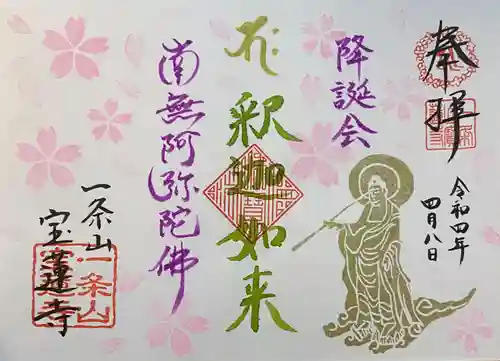 奉拝
令和四年
四月八日
降誕会
釈迦如来
南無阿弥陀佛
一条山
宝蓮寺
一条山